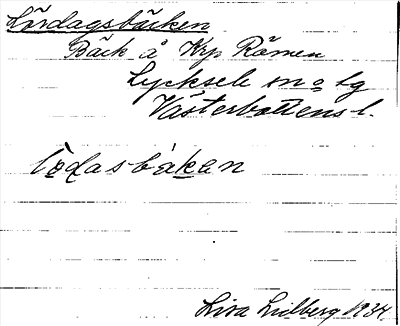 Lördagsbäcken
Bäck å Krp Römen
Lycksele sn o lg
Västerbottens l.
lödasbakan
Lisa Lidberg 1934